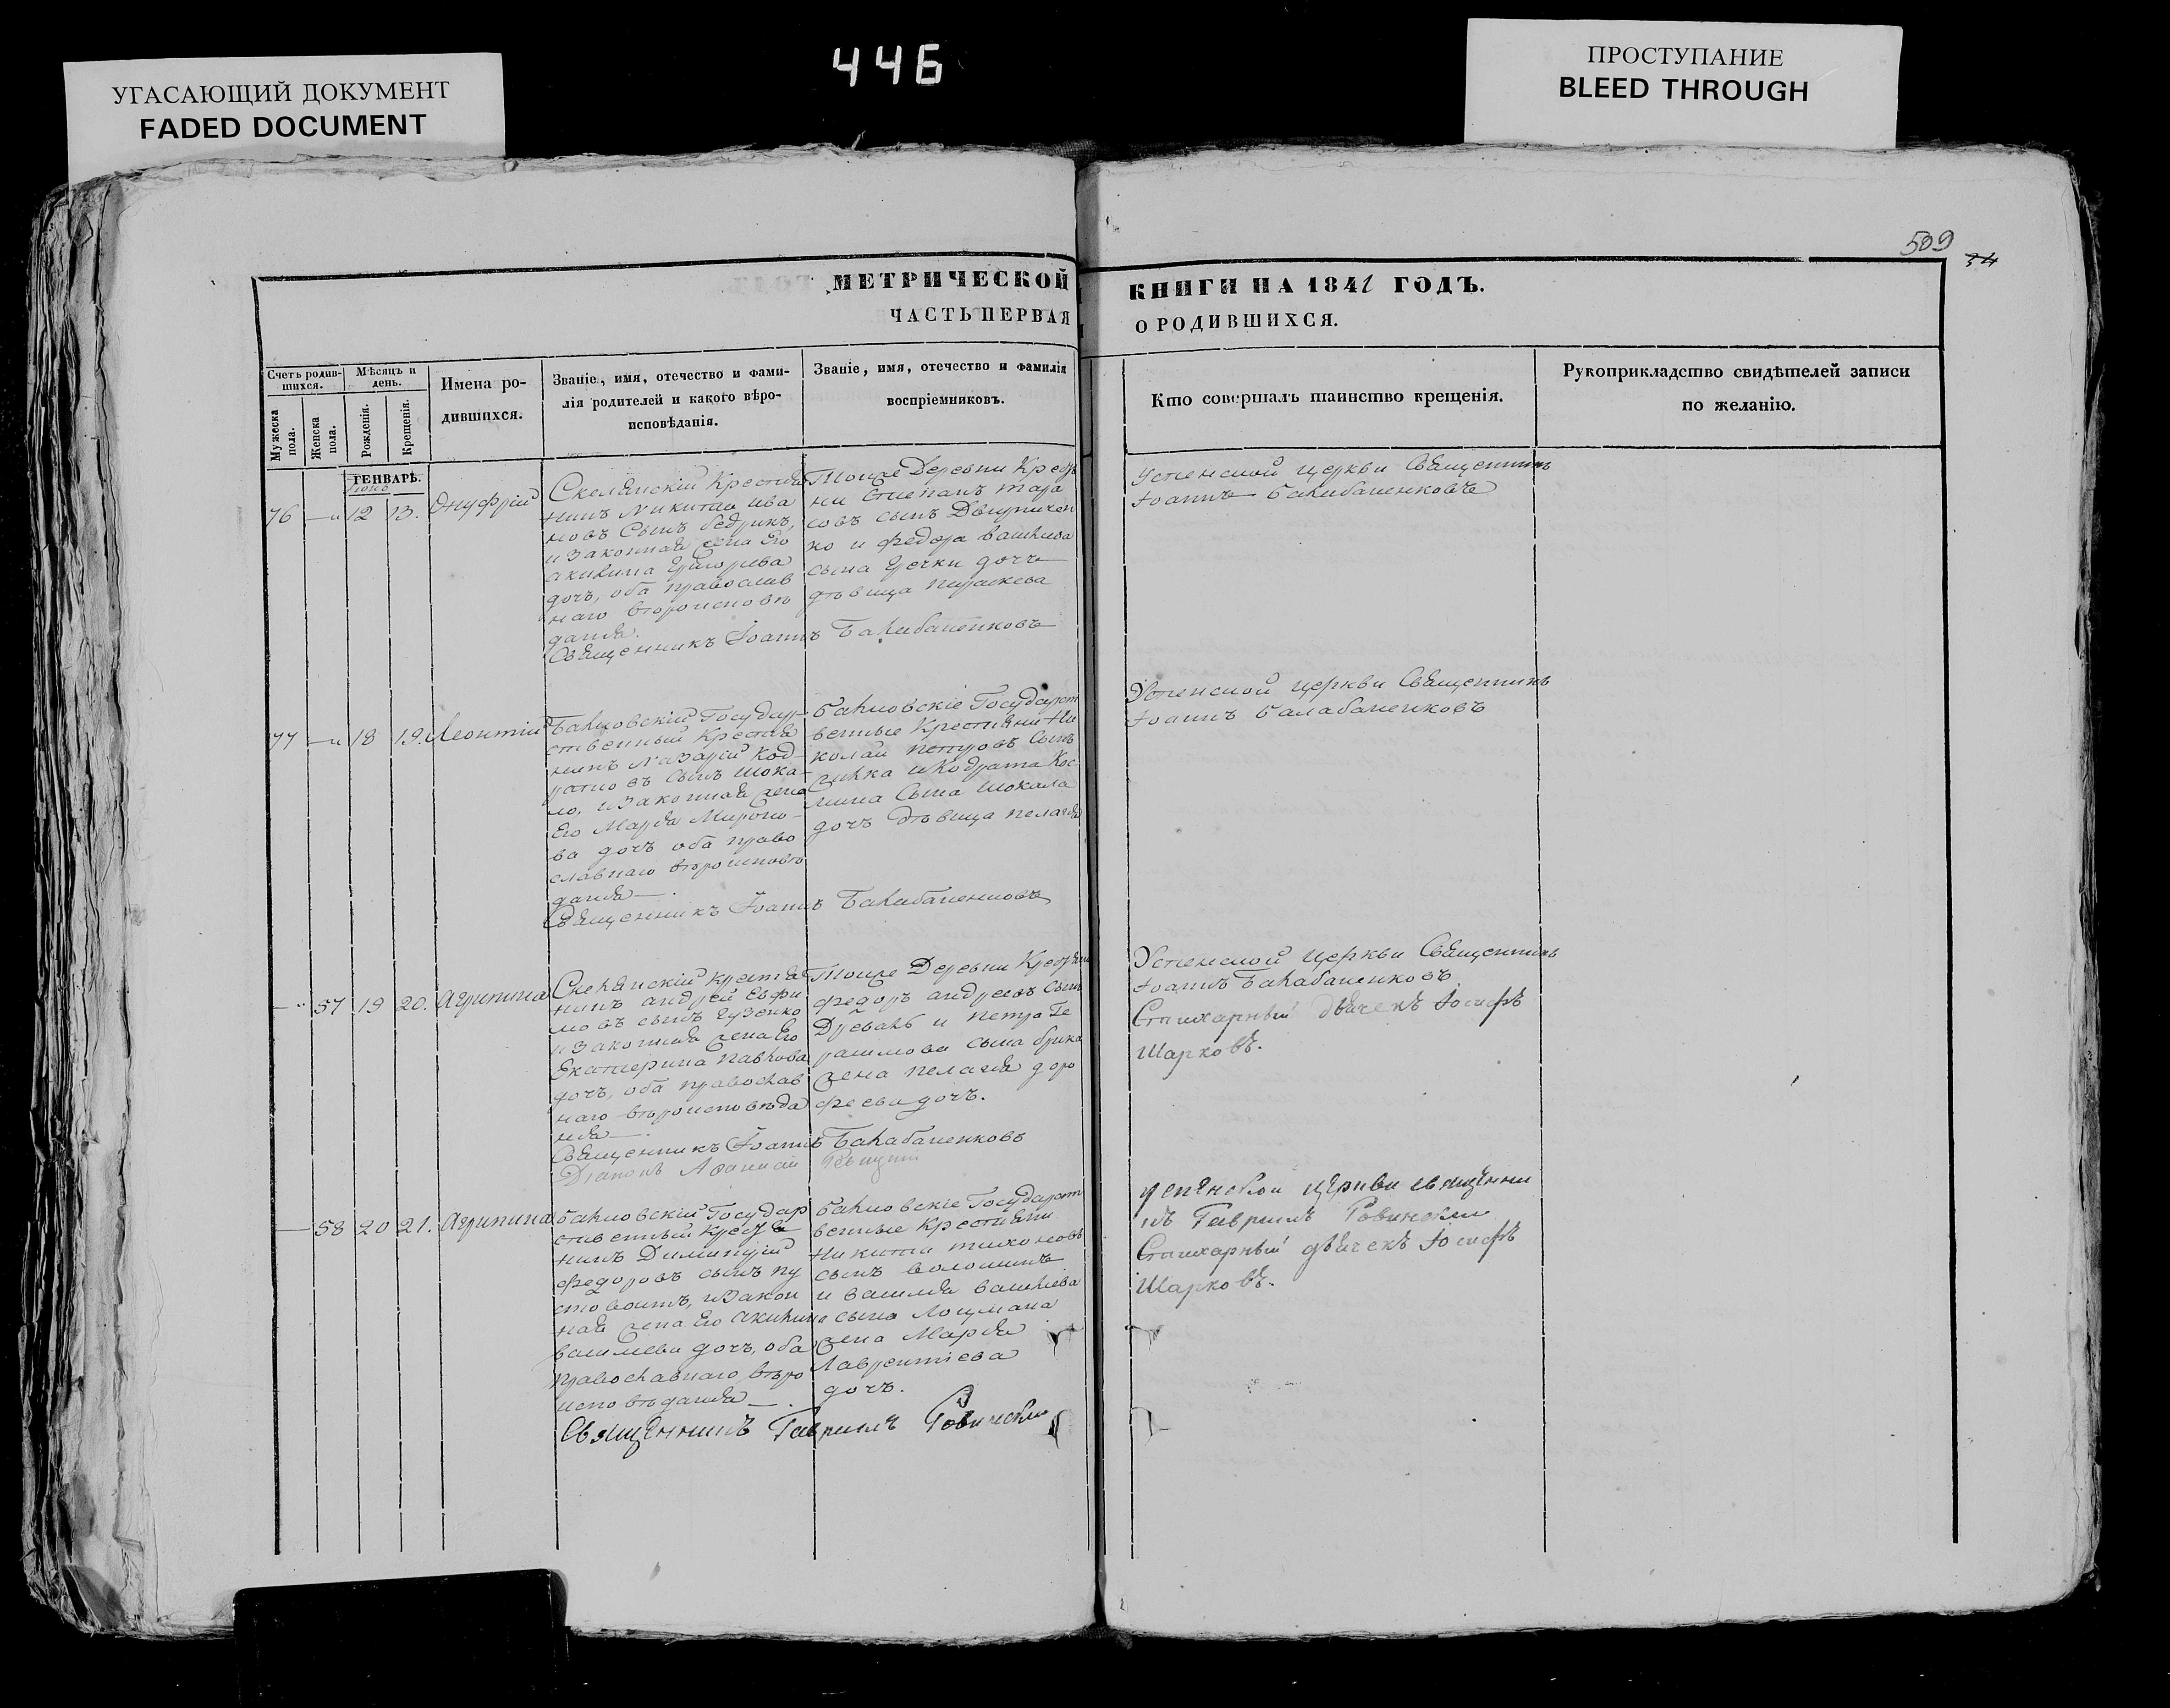 УГАСАЮЩИЙ ДОКУМЕНТ
FADED DOCUMENT
446
ПРОСТУПАНИЕ
BLEED THROUGH
509
34
МЕТРИЧЕСКОЙ
ЧАСТЬ ПЕРВАЯ
КНИГИ НА 1842 ГОДЪ.
О РОДИВШИХСЯ.
Счетъ родив-
шихся.
Мужеска
пола.
Женска
пола.
Мѣсяцъ и
день.
Рожденія.
Крещенія.
Имена ро-
дившихся.
Званіе, имя, отечество и фами-
лія родителей и какого вѣро-
исповѣданія.
Званіе, имя, отечество и фамилія
воспріемниковъ.
Кто совершалъ таинство крещенія.
Рукоприкладство свидѣтелей записи
по желанію.
ГЕНВАРЬ.
76 12 13. Онуфрій
Скелянскій Крестья
нинъ Никита Ива
новъ Сынъ
и Законная жена Его
Акилина
дочь, оба православ
наго вѣроисповѣ
данія.
Священникъ Іоаннъ Балабаненковъ
Тойже Деревни Кресть
не Степанъ Тара
совъ сынъ
ко и Федора
сына дочь
дѣвица
Успенской церкви Священникъ
Іоаннъ Балабаненковъ
77 18 19. Леонтій
Государ-
ственный Крестья
нинъ Назарій Код
ратовъ сынъ Шока-
ло, и Законная жена
Его Марія Мироно-
ва дочь оба право
славнаго вѣроисповѣ
данія.
Священникъ Іоаннъ Балабаненковъ
Государст
венные Крестьяне Ни
колай Петровъ Сынъ
и Кодрата Кос
мина Сына Шокала
дочь дѣвица Пелагія
Успенской церкви Священникъ
Іоаннъ Балабаненковъ
57 19 20. Агрипина
Скелянскій Крестья
нинъ Андрей Евфи
мовъ сынъ Гузенко
и Законная жена Его
Екатерина Павлова
дочь, оба православ
наго вѣроисповѣда
нія.
Священникъ Іоаннъ Балабаненковъ
Тойже Деревни Крестьяне
Федоръ Андреевъ Сынъ
и Петра Ге
расимова сына
жена Пелагія Доро
феева дочь.
Успенской церкви Священникъ
Іоаннъ Балабаненковъ
Стихарный дьячекъ Іосифъ
Шарковъ.
58 20 21. Агрипина
Государ
ственный Крестья
нинъ Димитрій
Федоровъ сынъ Пу
стовойтъ, и Закон
ная жена Его Акилина
Василиева дочь, оба
православнаго вѣро
исповѣданія.
Священникъ Гавриилъ
Государст
венные Крестьяне
Никита Тихоновъ
сынъ Волошинъ
и Василія Василіева
сына Лоцмана
жена Марія
Лаврентіева
дочь.
Успенской церкви священни
къ Гавриилъ
Стихарный дьячекъ Іосифъ
Шарковъ.